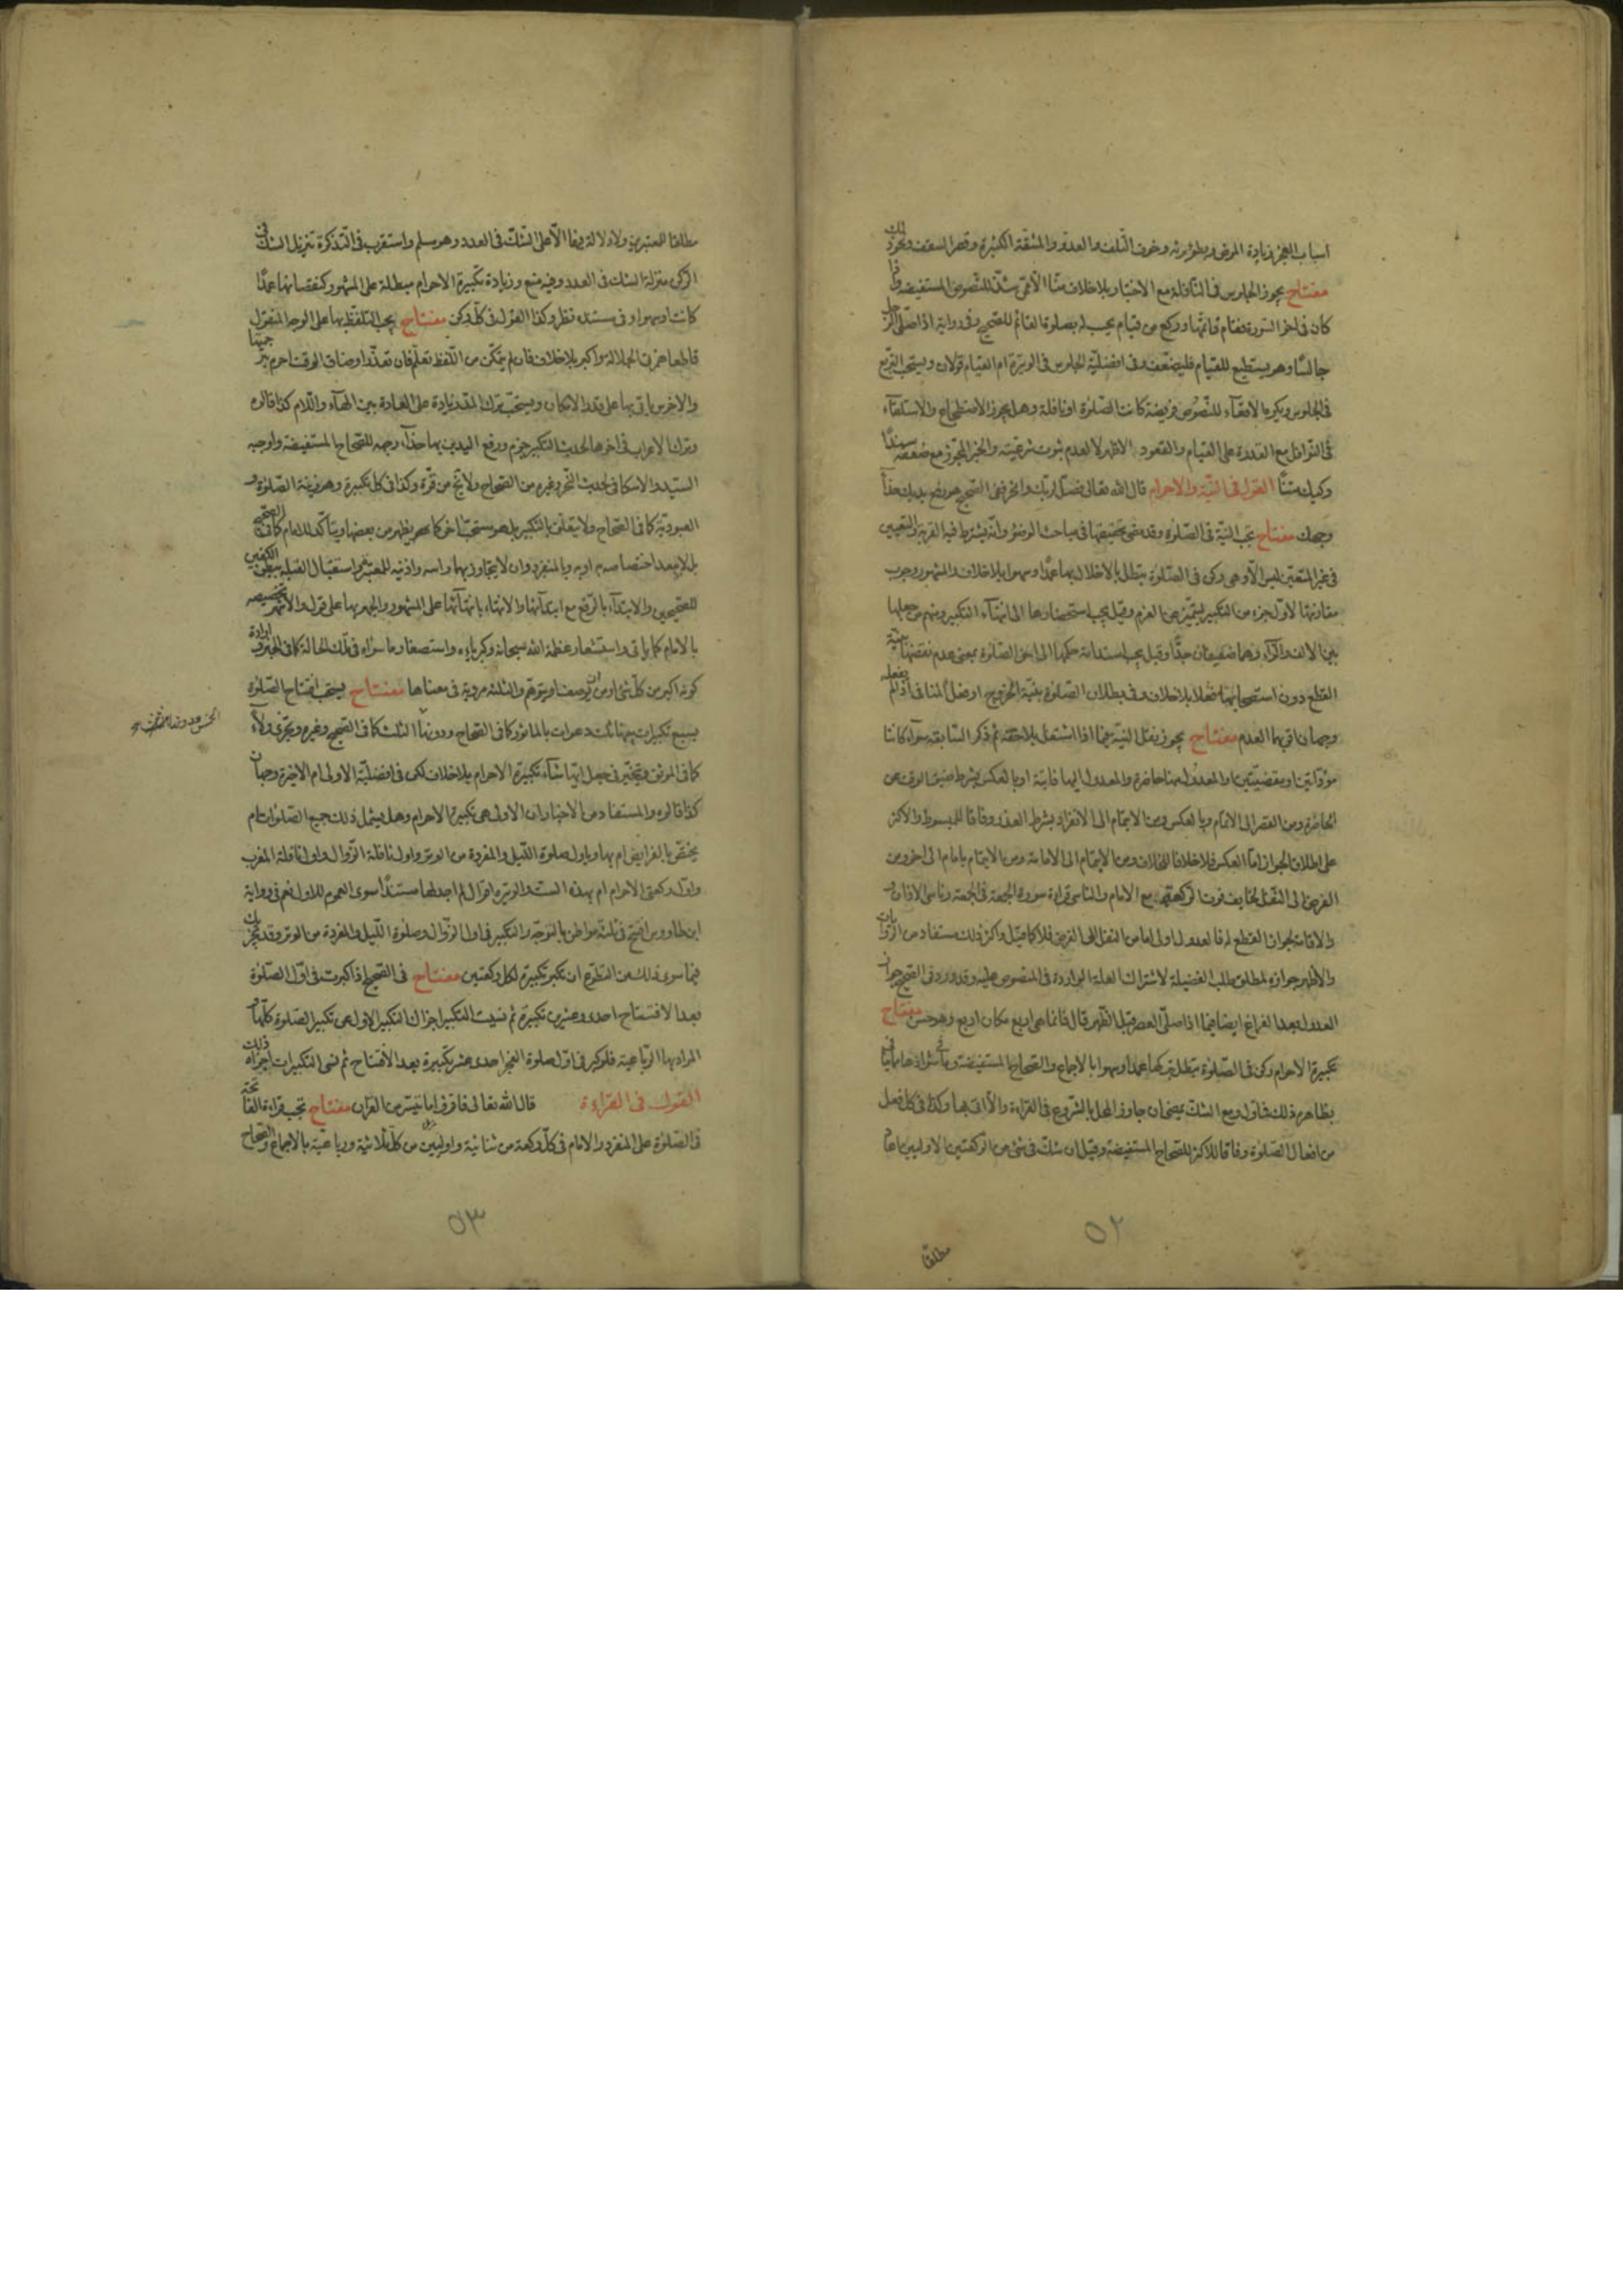 اسباب العجز زيادة المرض و بطؤ برئه و خوف التلف و العدو و المشقة الكثيرة و قصر السقف و نحو ذلك
مفتاح يجوز الجلوس في النافلة مع الاختيار بلا خلاف منا الا ممن شذ للنصوص المستفيضة و اذا
كان في اخر السورة فقام فاتمها و ركع من قيام يحسب له بصلوة القائم للصحيح و في رواية اذا صلى الرجل
جالسا و هو يستطيع للقيام فليضعف و في افضلية الجلوس في الوتيرة ام القيام قولان و يستحب التربع
في الجلوس و يكره الاقعاء للنصوص فريضة كانت الصلوة او نافلة و هل يجوز الاضطجاع و الاستلقاء
في النوافل مع القدرة على القيام و القعود الاظهر لا لعدم ثبوت شرعيته و الخبر المجوز مع ضعفه سندا
ركيك متنا القول في النية و الاحرام قال الله تعالى فصل لربك و انحر و في الصحيح هو رفع يديك حذاء
وجهك مفتاح تجب النية في الصلوة و قد مضى تحقيقها في مباحث الوضوء و انه يشترط فيه القربة و التعيين
في غير المتعين ليس الا و هي ركن في الصلوة تبطل بالاخلال بها عمدا و سهوا بلا خلاف و المشهور وجوب
مقارنتها لاول جزء من التكبير ليتميز عن العزم و قيل يجب استحضارها الى انتهاء التكبير و منهم من جعلها
بين الالف و الراء و هما ضعيفان جدا و قيل يجب استدامة حكمها الى اخر الصلوة بمعنى عدم نقضها بنية
القطع دون استصحابها فعلا بلا خلاف و في بطلان الصلوة بنية الخروج او فعل المنافي اذا لم يفعله
وجهان اقربهما العدم مفتاح يجوز نقل النية فيما اذا اشتغل بلاحقة ثم ذكر السابقة سواء كانتا
مؤداتين او مقضيتين او المعدول عنها حاضرة و المعدول اليها فائتة او بالعكس بشرط ضيق الوقت عن
الحاضرة و من القصر الى الاتمام و بالعكس و من الايتمام الى الانفراد بشرط العذر وفاقا للمبسوط و الاكثر
على اطلاق الجواز اما العكس فلا خلافا للخلاف و من الايتمام الى الامامة و من الايتمام بامام الى اخر و من
الفرض الى النفل لخايف فوت الركعة مع الامام و الناسي قراءة سورة الجمعة في الجمعة و ناسي الاذان و
الاقامة لجواز القطع له فالعدول اولى اما من النفل الى الفرض فلا كما قيل و اكثر ذلك مستفاد من الروايات
و الاظهر جوازه لمطلق طلب الفضيلة لاشتراك العلة الواردة في المنصوص عليه و قد ورد في الصحيح جواز
العدول بعد الفراغ ايضا فيما اذا صلى العصر قبل الظهر قال فانما هي اربع مكان اربع و هو حسن مفتاح
تكبيرة الاحرام ركن في الصلوة تبطل بتركها عمدا و سهوا بالاجماع و الصحاح المستفيضة و ما شذ
بظاهره ذلك فماول و مع الشك يمضي ان جاوز المحل بالشروع في القراءة و الا اتى بها و كذا في كل فعل
من افعال الصلوة وفاقا للاكثر للصحاح المستفيضة و قيل ان شك في شئ من الركعتين الاوليين اعاد
٥٢
مطلقا
مطلقا للمعتبرين و لا دلالة فيها الا على الشك في العدد و هو مسلم و استقرب في التذكرة تنزيل الشك في
الركن منزلة الشك في العدد و فيه منع و زيادة تكبيرة الاحرام مبطلة على المشهور كنقصانها عمدا
كانت او سهوا و في مستنده نظر و كذا القول في كل ركن مفتاح يجب التلفظ بها على الوجه المنقول
قاطعا همزتي الجلالة و اكبر بلا خلاف فان لم يتمكن من التلفظ تعلم فان تعذر او ضاق الوقت احرم بترجمتها
و الاخرس ياتي بها على قدر الامكان و يستحب ترك المد زيادة على العادة بين الهاء و اللام كذا قالوه
و ترك الاعراب في اخرها لحديث التكبير جزم و رفع اليدين بها حذاء وجهه للصحاح المستفيضة و اوجبه
السيد و الاسكافي لحديث النحر و غيره من الصحاح و لا يخ من قوة و كذا في كل تكبيرة و هو زينة الصلوة و
العبودية كما في الصحاح و لا يتعلق بالتكبير بل هو مستحب اخر كما يظهر من بعضها و يتاكد للامام كما في الصحيح
بل لا يبعد اختصاصه به او به و بالمنفرد و ان لا يتجاوز بهما راسه و اذنيه للمعتبر و استقبال القبلة ببطن الكفين
للصحيحين و الابتداء بالرفع مع ابتدائها و الانتهاء بانتهائها على المشهور و الجهر بها على قول و الاشهر تخصيصه
بالامام كما ياتي و استشعار عظمة الله سبحانه و كبريائه و استصغار ما سواه في تلك الحالة كما في الخبر و ارادة
كونه اكبر من كل شئ او من ان يوصف او يتوهم و الثلثة مروية في معناها مفتاح يستحب افتتاح الصلوة
بسبع تكبيرات بينها ثلث دعوات بالماثور كما في الصحاح و دونها الثلث كما في الصحيح و غيره و يجزى ولاء
كما في الموثق و يتخير في جعل ايتها شاء تكبيرة الاحرام بلا خلاف لكن في افضلية الاولى ام الاخيرة وجهان
كذا قالوه و المستفاد من الاخبار ان الاولى هي تكبيرة الاحرام و هل يشمل ذلك جميع الصلوات ام
يختص بالفرايض ام بها و باول صلوة الليل و المفردة من الوتر و اول نافلة الزوال و اول نافلة المغرب
و اول ركعتي الاحرام ام بهذه الست و الوتيرة اقوال لم اجد لها مستندا سوى العموم للاول نعم في رواية
ابن طاووس افتتح في ثلثة مواطن بالتوجه و التكبير في اول الزوال و صلوة الليل و المفردة من الوتر و قد يجزيك
فيما سوى ذلك من التطوع ان تكبر تكبيرة لكل ركعتين مفتاح في الصحيح اذا كبرت في اول الصلوة
بعد الافتتاح احدى و عشرين تكبيرة ثم نسيت التكبير اجزاك التكبير الاول عن تكبير الصلوة كلها و
المراد بها الرباعية فلو كبر في اول صلوة الفجر احدى عشر تكبيرة بعد الافتتاح ثم نسي التكبيرات اجزاه ذلك
القول في القراءة قال الله تعالى فاقرؤا ما تيسر من القران مفتاح تجب قراءة الفاتحة
في الصلوة على المنفرد و الامام في كل ركعة من ثنائية و اوليين من كل ثلاثية و رباعية بالاجماع و الصحاح
٥٣